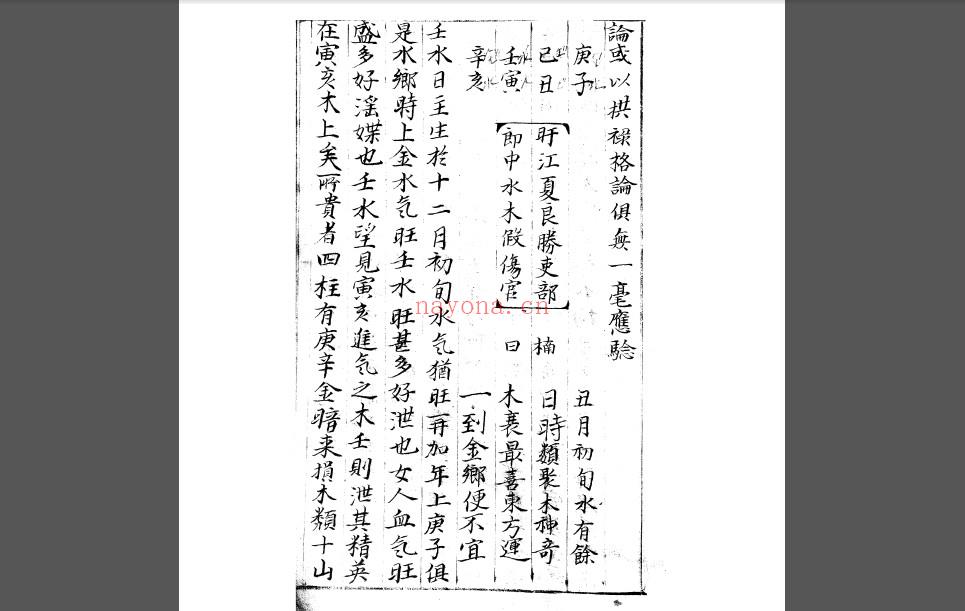 論或以拱祿格論俱無一毫應驗
庚子
丑月初旬水有餘
己丑
盱江夏良勝吏部
楠
日時類聚木神奇
壬寅
郎中水木假傷官
曰
木衰最喜東方運
辛亥
一到金鄉便不宜
壬水日主生於十二月初旬水気猶旺再加年上庚子俱
是水鄉時上金水気旺壬水旺甚多好泄也女人血気旺
盛多好滛媟也壬水望見寅亥進気之木壬則泄其精英
在寅亥木上矣所貴者四柱有庚辛金暗来損木類十山
nayona.cn